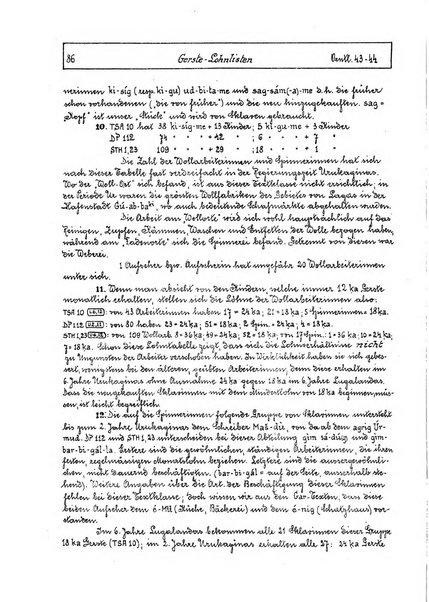 86 Gerste-Lohnlisten Orntl. 43-44
nerinnen ki-síg (resp. ki-gu) ud-bi-ta-me und sag-sám(-a)-me d.h. die früher
schon vorhandenen („die von früher") und die neu hinzugekauften. sag =
„Kopf" ist unser „Stück" und wird von Sklaven gebraucht.
10. TSA 10 hat 38 ki-síg-me + 13 Kinder; 5 ki-gu-me + 3 Kinder
DP 112 74 " + 42 " ; 6 " + 7 "
STH 1,23 109 " + 29 " ; 18 " + 1 "
Die Zahl der Wollarbeiterinnen und Spinnerinnen hat sich
nach dieser Tabelle fast verdreifacht in der Regierungszeit Urukaginas.
Wo der „Woll-Ort" sich befand, ist aus dieser Textklasse nicht ersichtlich; in
der Periode Ur waren die grössten Wollfabriken des Gebietes von Lagas in der
Hafenstadt Gú-ab-ba, wo auch bedeutende Schafmärkte abgehalten wurden.
Die Arbeit am „Wollorte" wird sich wohl hauptsächlich auf das
Reinigen, Zupfen, Kämmen, Waschen und Entfetten der Wolle bezogen haben,
während am „Fadenorte" sich die Spinnerei befand. Getrennt von diesen war
die Weberei.
1 Aufseher bzw. Aufseherin hat ungefähr 20 Wollarbeiterinnen
unter sich.
11. Wenn man absieht von den Kindern, welche immer 12 ka Gerste
monatlich erhalten, stellen sich die Löhne der Wollarbeiterinnen also:
TSA 10 von 43 Arbeiterinnen haben 17 = 24 ka; 21 = 18 ka; 5 Spinnerinnen = 18 ka.
DP 112 von 80 haben 23 = 24 ka; 51 = 18 ka; 2 Spin. = 24 ka; 4 = 18 ka.
STH 1,23 von 109 Wollarb. 8 = 36 ka; 49 = 24 ka; 52 = 18 ka; von 17 Spin.: 1 = 36 ka; 10 = 24 ka;
7 = 18 ka. Schon diese Lohntabelle zeigt, dass sich die Lohnverhältnisse nicht
zu Ungunsten der Arbeiter verschoben haben. In Wirklichkeit haben sie sich gebes-
sert, wenigstens bei den älteren, geübten Arbeiterinnen, denn diese erhalten im
6. Jahre Urukaginas ohne Ausnahme 24 ka gegen 18 ka im 6. Jahre Lugalandas.
Dass die neugekauften Sklavinnen mit dem Mindestlohn von 18 ka beginnen, müs-
sen, ist leicht begreiflich.
12. Die auf die Spinnerinnen folgende Gruppe von Sklavinnen untersteht
bis zum 2. Jahre Urukaginas dem Schreiber Maš-dù, von da ab dem agrig Ur-
mud. DP 112 und STH 1,23 unterscheiden bei dieser Abteilung gim sá-dug₄ und gim-
bar-bi-gál-la. Erstere sind die gewöhnlichen, ständigen Arbeiterinnen, die ihren
festen, regelmässigen Monatslohn beziehen, Letztere die extra angeworbenen,
nicht dauernd beschäftigten. (bar-bi-gál = auf der Seite, ausserhalb ste-
hend). Weitere Angaben über die Art der Beschäftigung dieser Sklavinnen
fehlen bei dieser Textklasse; doch wissen wir aus den Gàr-Texten, dass diese
beiden Aufseher dem é-MÚ (Küche, Bäckerei) und dem é-níg (Schatzhaus) vor-
standen.
Im 6. Jahre Lugalandas bekommen alle 21 Sklavinnen dieser Gruppe
18 ka Gerste (TSA 10); im 2. Jahre Urukaginas erhalten alle 27: 24 ka Gerste